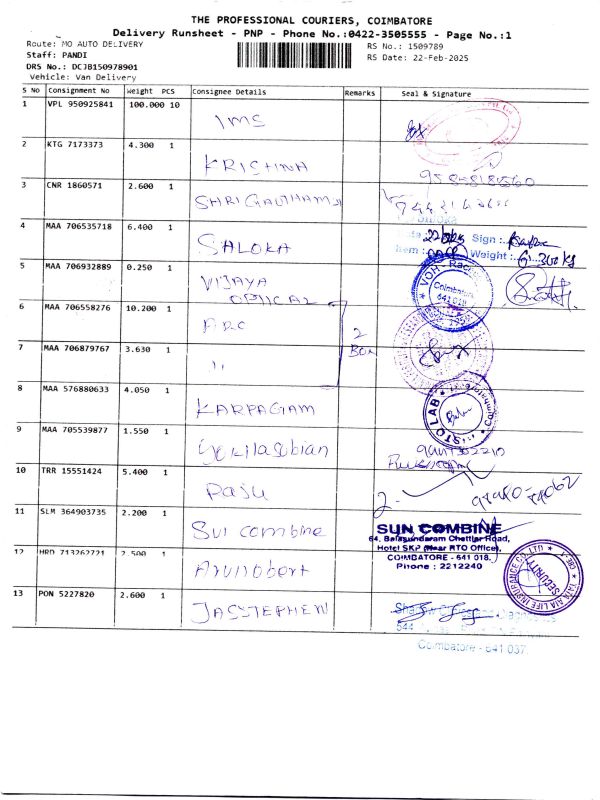 THE PROFESSIONAL COURIERS, COIMBATORE
Delivery Runsheet - PNP - Phone No.:0422-3505555 - Page No.:1
Route: MO AUTO DELIVERY RS No.: 1509789
Staff: PANDI RS Date: 22-Feb-2025
DRS No.: DCJB150978901
Vehicle: Van Delivery
S No Consignment No Weight PCS Consignee Details Remarks Seal & Signature
1 VPL 950925841 100.000 10 IMS
2 KTG 7173373 4.300 1 KRISHNA
3 CNR 1860571 2.600 1 SHRI GAUTHAM
4 MAA 706535718 6.400 1 SALOKA
Sign :
Item : Weight : 6.300 kg
5 MAA 706932889 0.250 1 VIJAYA OPTICAL
Coimbatore
641 018
6 MAA 706558276 10.200 1 ARC 2 Box
7 MAA 706879767 3.630 1 "
8 MAA 576880633 4.050 1 KARPAGAM
9 MAA 705539877 1.550 1
10 TRR 15551424 5.400 1 Raju
11 SLM 364903735 2.200 1 Sui combine
SUN COMBINE
64, Balasundaram Chettiar Road,
Hotel SKP (Near RTO Office),
COIMBATORE - 641 018.
Phone : 2212240
12 HRD 713262721 2.500 1
TATA AIA LIFE INSURANCE CO. LTD
SECURITY
13 PON 5227820 2.600 1 JASSTEPHEN
544
Coimbatore - 641 037.